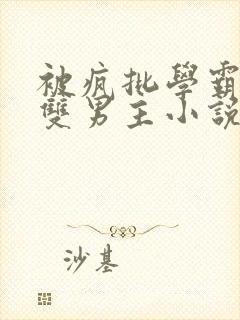 被瘋批學霸
雙男主小說
沙基